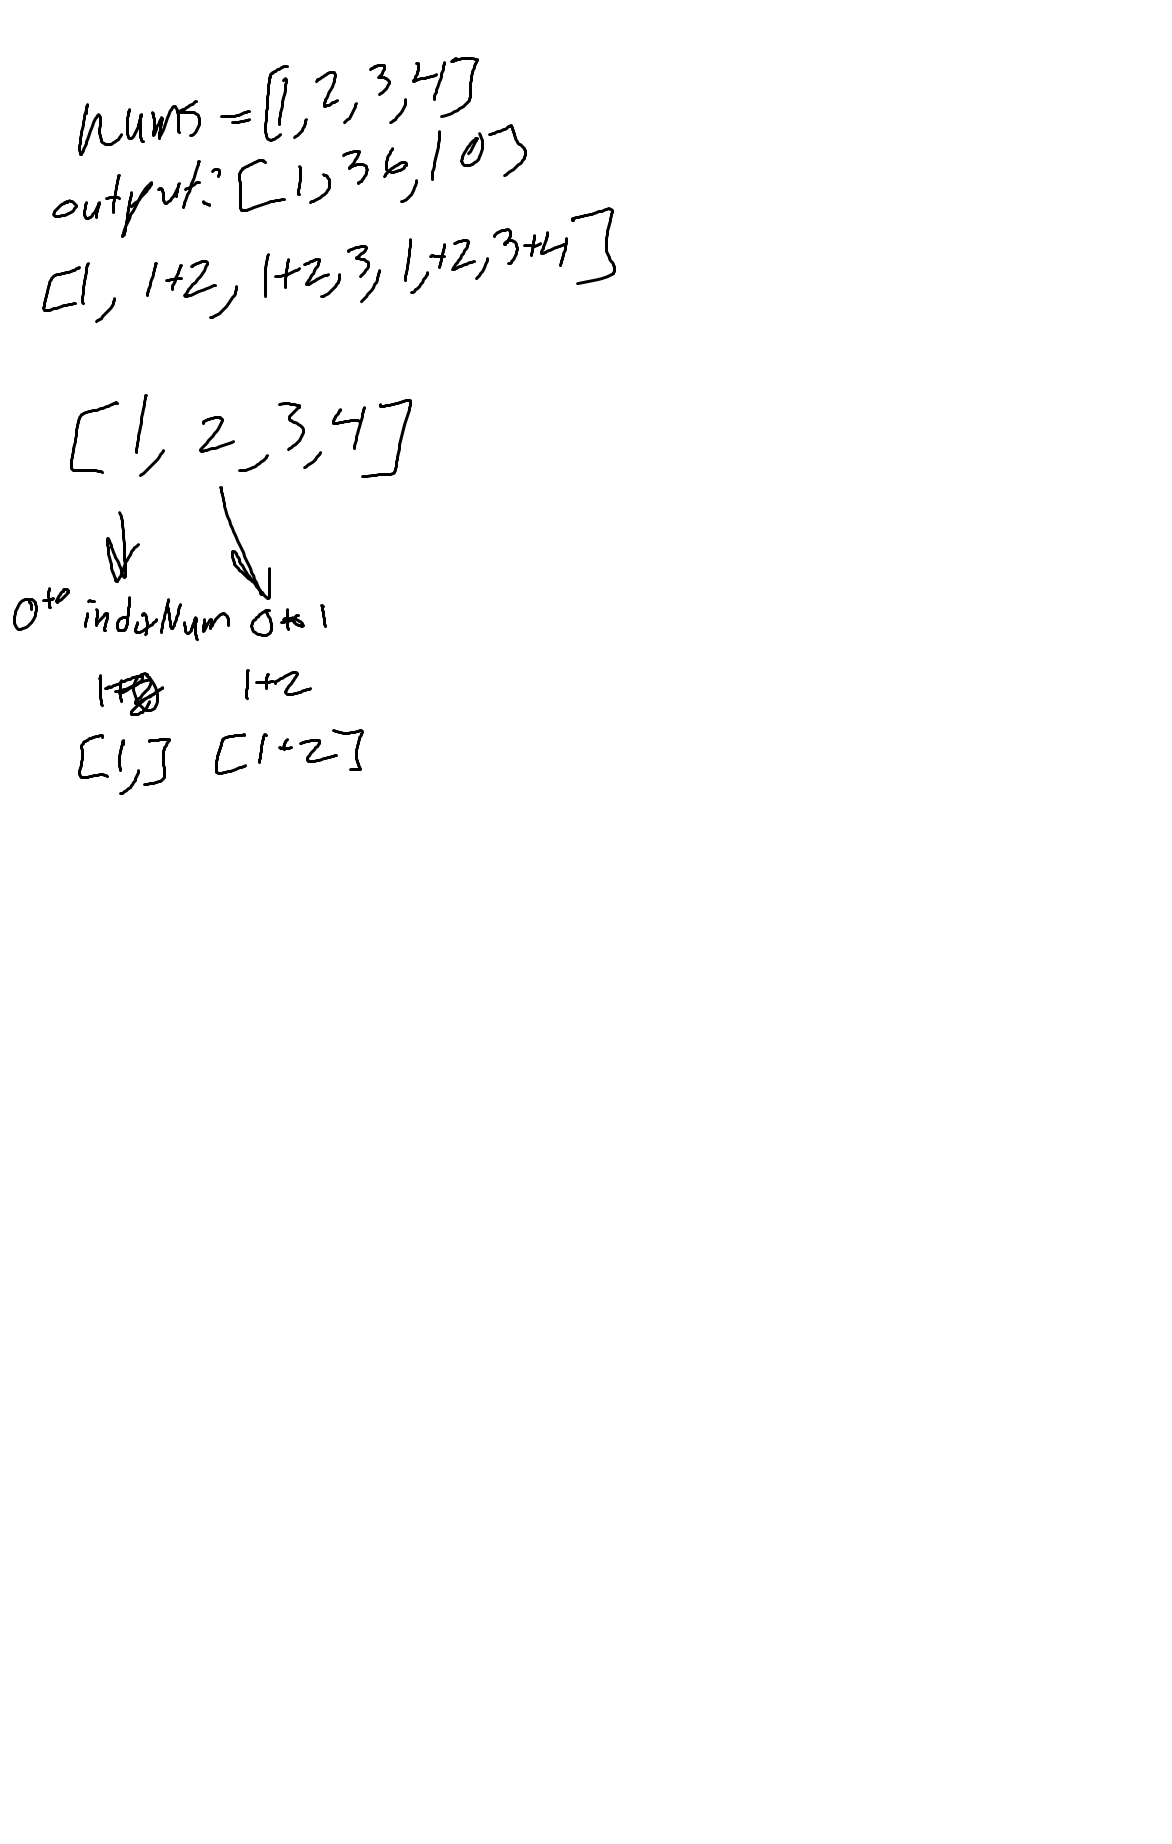 nums = [1, 2, 3, 4]
output: [1, 3 6, 10]
[1, 1+2, 1+2, 3, 1,+2, 3+4]
[1, 2, 3, 4]
0 to indexNum 0 to 1
1+ 1+2
[1,] [1+2]